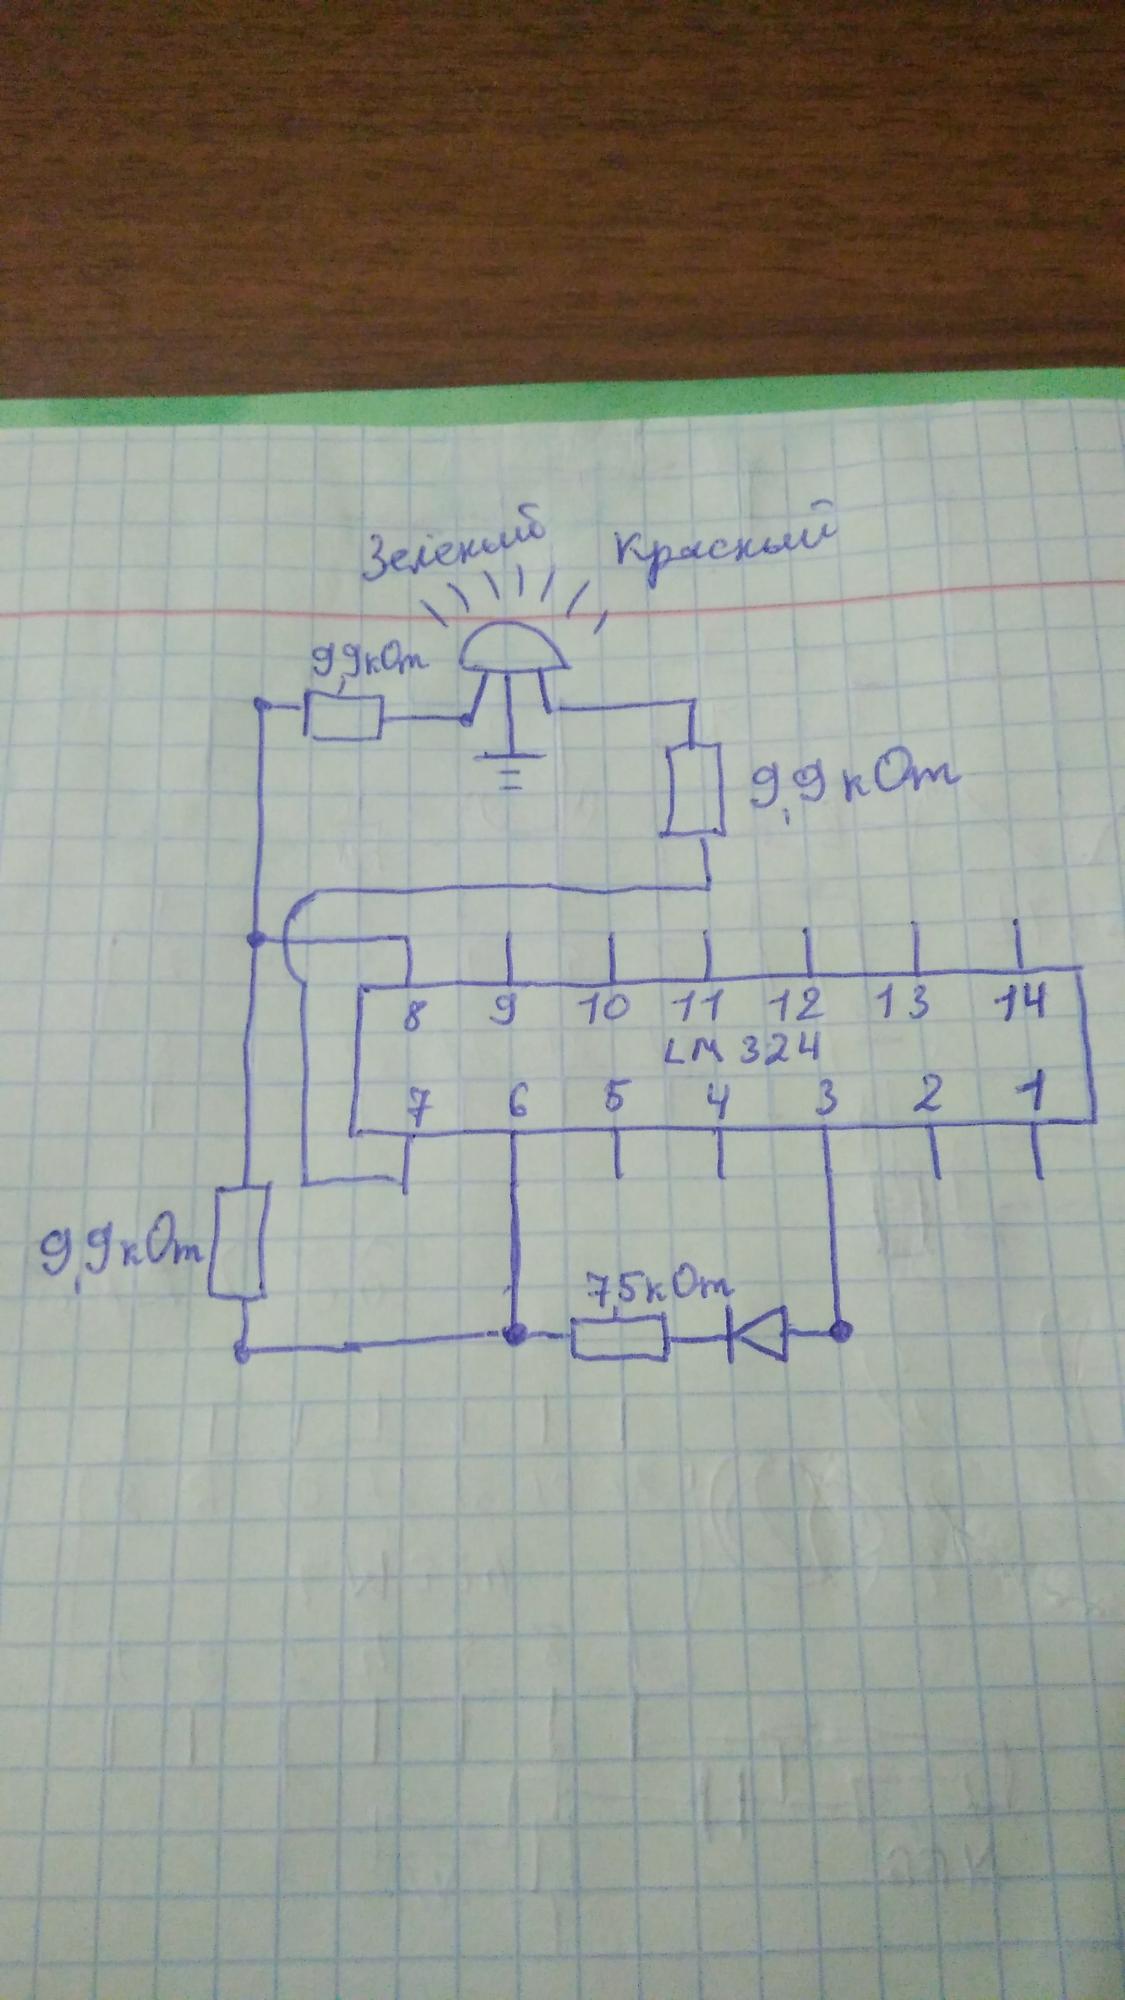 Зелёный Красный
9,9кОм
9,9кОм
8 9 10 11 12 13 14
LM 324
7 6 5 4 3 2 1
9,9кОм
7,5кОм